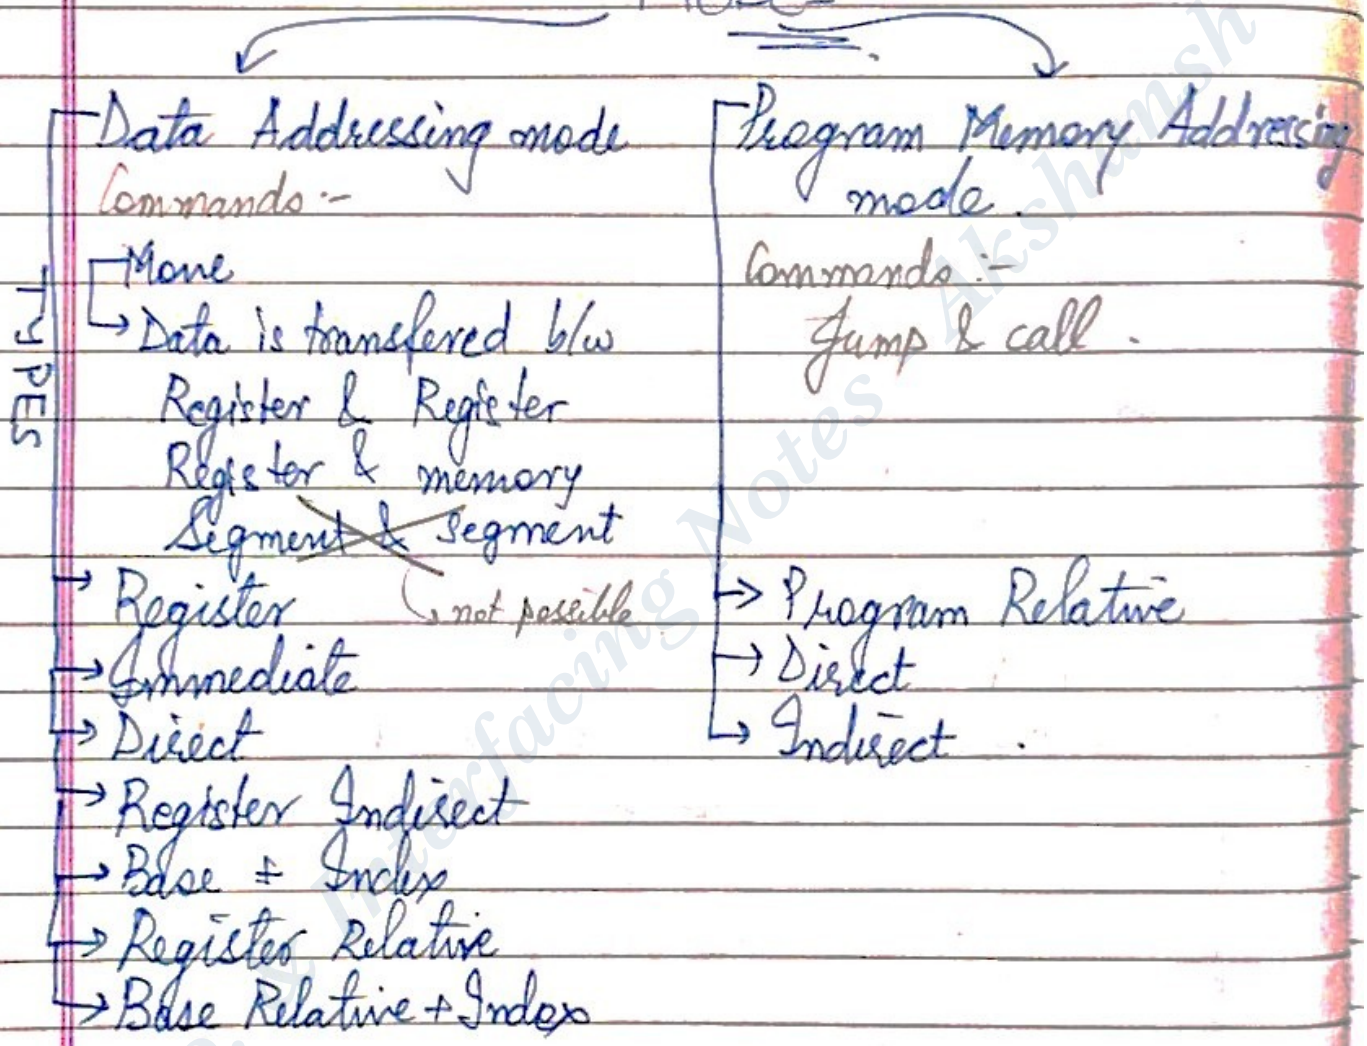 Data Addressing mode
Commands :-
Move
Data is transfered b/w
Register & Register
Register & memory
Segment & segment
not possible
TYPES
Register
Immediate
Direct
Register Indirect
Base + Index
Register Relative
Base Relative + Index
Program Memory Addressing
mode.
Commands :-
Jump & call.
Program Relative
Direct
Indirect.
Interfacing Notes Akshansh